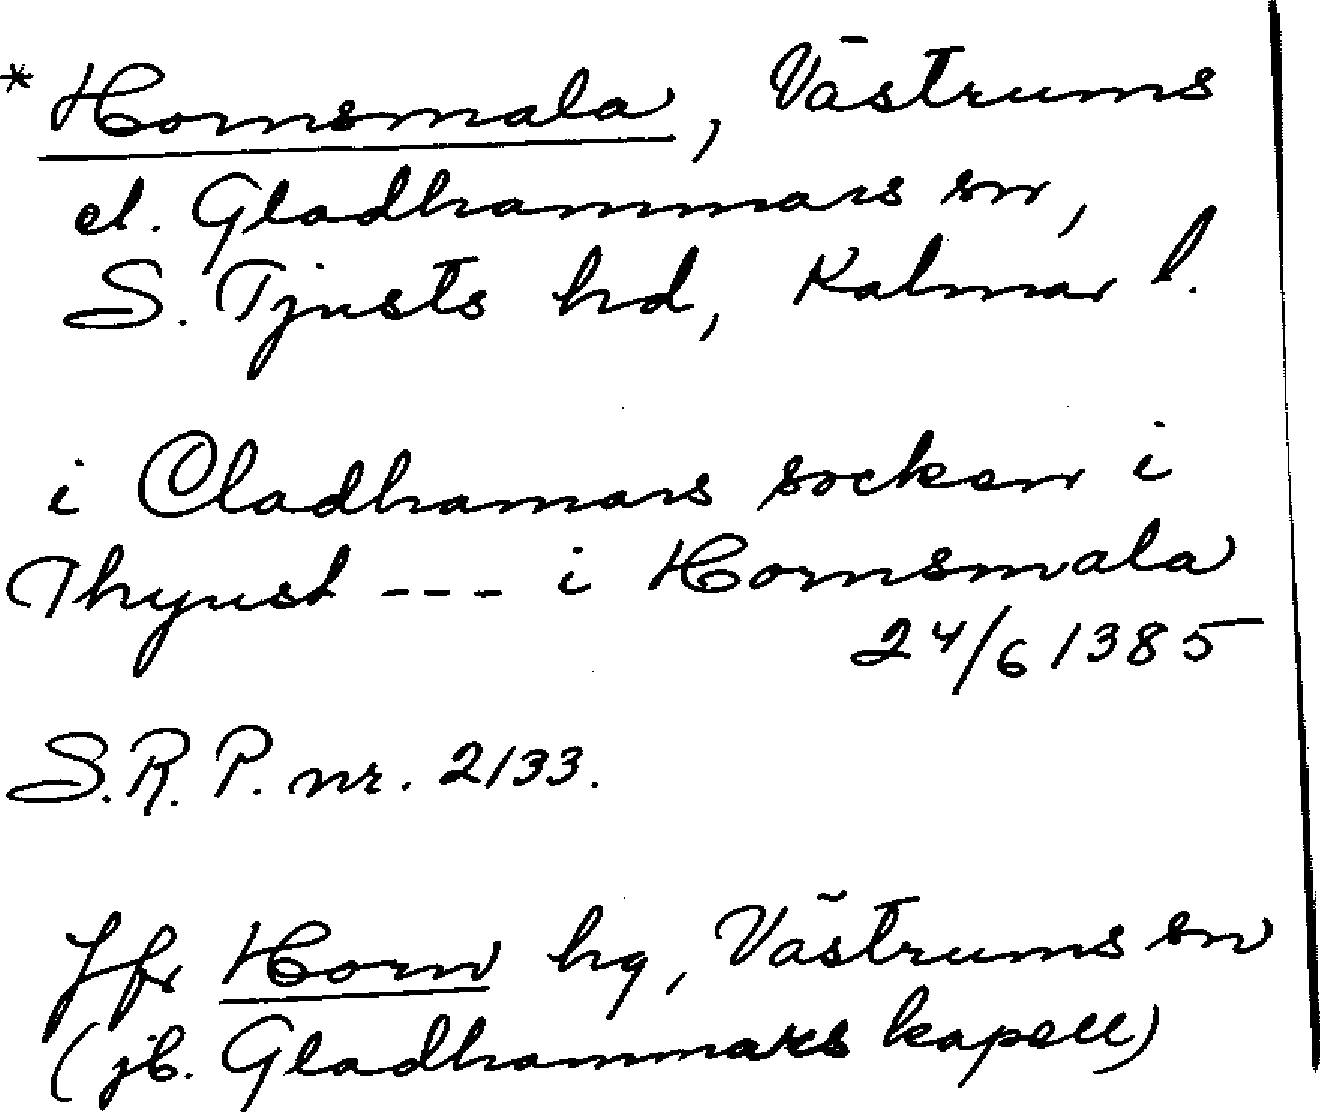 * Hornsmala, Västrums
el. Gladhammars sn,
S. Tjusts hd, Kalmar l.
i Cladhamars socken i
Thyust --- i Hornsmala
24/6 1385
S.R.P. nr. 2133.
Jfr Horn hg, Västrums sn
(jb. Gladhammars kapell)